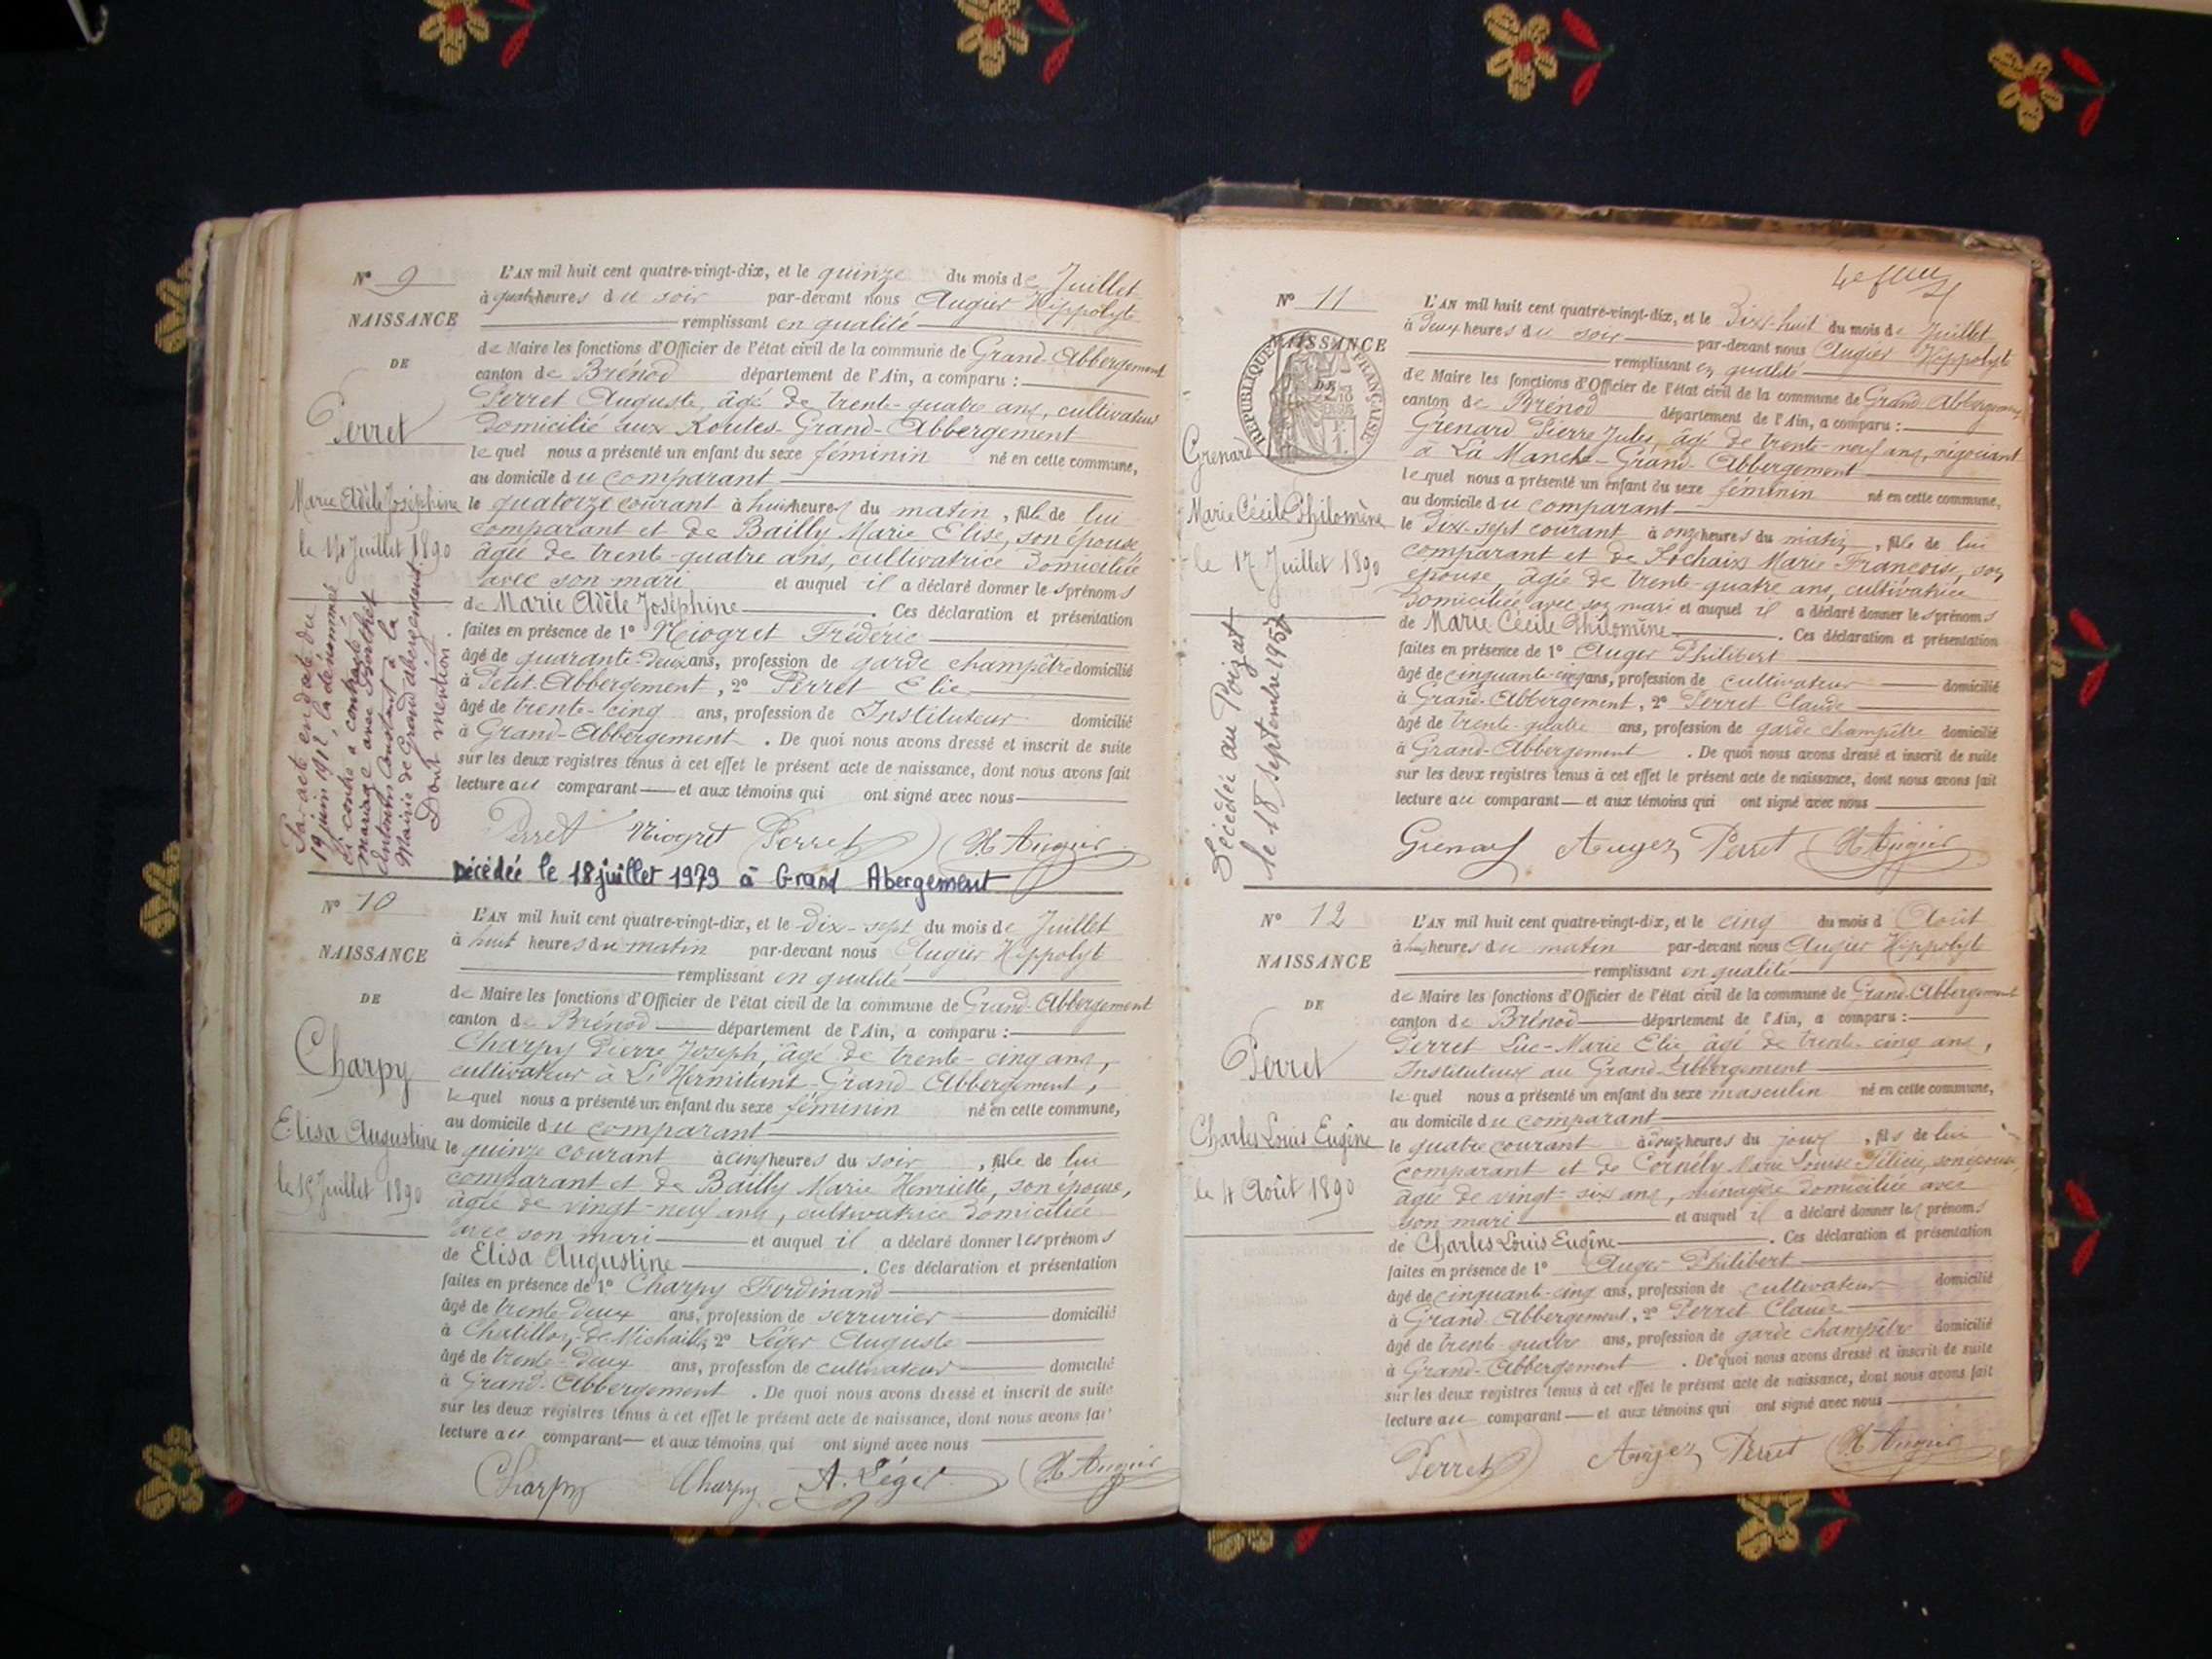 N° 9
NAISSANCE
DE
Perret
Marie Adèle Joséphine
le 14 Juillet 1890
Par acte en date du
19 juin 1912, la dénommée
ci contre a contracté
mariage avec
Antonin Constant à la
Mairie de Grand abergement.
Dont mention.
L'AN mil huit cent quatre-vingt-dix, et le quinze du mois de Juillet
à quatre heures du soir par-devant nous Augier Hippolyte
remplissant en qualité
de Maire les fonctions d'Officier de l'état civil de la commune de Grand-Abbergement
canton de Brénod département de l'Ain, a comparu :
Perret Auguste, âgé de trente-quatre ans, cultivateur
domicilié aux Routes-Grand-Abbergement
lequel nous a présenté un enfant du sexe féminin né en cette commune,
au domicile du comparant
le quatorze courant à huit heures du matin, fille de lui
comparant et de Bailly Marie Elise, son épouse
âgée de trente-quatre ans, cultivatrice domiciliée
avec son mari et auquel il a déclaré donner les prénoms
de Marie Adèle Joséphine. Ces déclaration et présentation
faites en présence de 1° Niogret Frédéric
âgé de quarante-deux ans, profession de garde champêtre domicilié
à Petit-Abbergement, 2° Perret Elie
âgé de trente-cinq ans, profession de Instituteur domicilié
à Grand-Abbergement. De quoi nous avons dressé et inscrit de suite
sur les deux registres tenus à cet effet le présent acte de naissance, dont nous avons fait
lecture au comparant et aux témoins qui ont signé avec nous
Perret Niogret Perret H. Augier
Décédée le 18 juillet 1979 à Grand Abergement
N° 10
NAISSANCE
DE
Charpy
Elisa Augustine
le 15 Juillet 1890
L'AN mil huit cent quatre-vingt-dix, et le dix-sept du mois de Juillet
à huit heures du matin par-devant nous Augier Hippolyt
remplissant en qualité
de Maire les fonctions d'Officier de l'état civil de la commune de Grand-Abbergement
canton de Brénod département de l'Ain, a comparu :
Charpy Pierre Joseph, âgé de trente-cinq ans,
cultivateur à L'Hermitant-Grand-Abbergement,
lequel nous a présenté un enfant du sexe féminin né en cette commune,
au domicile du comparant
le quinze courant à cinq heures du soir, fille de lui
comparant et de Bailly Marie Henriette, son épouse,
âgée de vingt-neuf ans, cultivatrice domiciliée
avec son mari et auquel il a déclaré donner les prénoms
de Elisa Augustine. Ces déclaration et présentation
faites en présence de 1° Charpy Ferdinand
âgé de trente-deux ans, profession de serrurier domicilié
à Chatillon-de-Michaille, 2° Léger Auguste
âgé de trente-deux ans, profession de cultivateur domicilié
à Grand-Abbergement. De quoi nous avons dressé et inscrit de suite
sur les deux registres tenus à cet effet le présent acte de naissance, dont nous avons fait
lecture au comparant et aux témoins qui ont signé avec nous
Charpy Charpy A. Léger H. Augier
N° 11
NAISSANCE
DE
RÉPUBLIQUE FRANÇAISE
Grenard
Marie Cécile Philomène
le 17 Juillet 1890
Décédée au Poizat
le 18 septembre 1957
L'AN mil huit cent quatre-vingt-dix, et le Dix-huit du mois de Juillet
à Deux heures du soir par-devant nous Augier Hippolyt
remplissant en qualité
de Maire les fonctions d'Officier de l'état civil de la commune de Grand Abbergement
canton de Brénod département de l'Ain, a comparu :
Grenard Pierre Jules, âgé de trente-neuf ans, négociant
à La Manche-Grand-Abbergement
lequel nous a présenté un enfant du sexe féminin né en cette commune,
au domicile du comparant
le Dix-sept courant à onze heures du matin, fille de lui
comparant et de Sochaix Marie-Françoise, son
épouse, âgée de trente-quatre ans, cultivatrice
domiciliée avec son mari et auquel il a déclaré donner les prénoms
de Marie Cécile Philomène. Ces déclaration et présentation
faites en présence de 1° Auger Philibert
âgé de cinquante-cinq ans, profession de cultivateur domicilié
à Grand-Abbergement, 2° Perret Claude
âgé de trente-quatre ans, profession de garde champêtre domicilié
à Grand-Abbergement. De quoi nous avons dressé et inscrit de suite
sur les deux registres tenus à cet effet le présent acte de naissance, dont nous avons fait
lecture au comparant et aux témoins qui ont signé avec nous
Grenard Auger Perret H. Augier
N° 12
NAISSANCE
DE
Perret
Charles Louis Eugène
le 4 Août 1890
L'AN mil huit cent quatre-vingt-dix, et le cinq du mois d'Août
à heures du matin par-devant nous Augier Hippolyt
remplissant en qualité
de Maire les fonctions d'Officier de l'état civil de la commune de Grand-Abbergement
canton de Brénod département de l'Ain, a comparu :
Perret Luc-Marie Elie âgé de trente-cinq ans,
Instituteur au Grand-Abbergement
lequel nous a présenté un enfant du sexe masculin né en cette commune,
au domicile du comparant
le quatre courant à douze heures du jour, fils de lui
comparant et de Cornély Marie Louise Félicie, son épouse,
âgée de vingt-six ans, ménagère domiciliée avec
son mari et auquel il a déclaré donner les prénoms
de Charles Louis Eugène. Ces déclaration et présentation
faites en présence de 1° Auger Philibert
âgé de cinquante-cinq ans, profession de cultivateur domicilié
à Grand Abbergement, 2° Perret Claude
âgé de trente-quatre ans, profession de garde champêtre domicilié
à Grand-Abbergement. De quoi nous avons dressé et inscrit de suite
sur les deux registres tenus à cet effet le présent acte de naissance, dont nous avons fait
lecture au comparant et aux témoins qui ont signé avec nous
Perret Auger Perret H. Augier